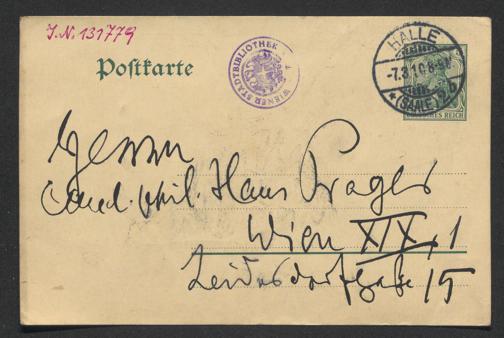 J.N. 131779
WIENER STADTBIBLIOTHEK
Postkarte
HALLE
-7.3.10.8-9V
*(SAALE)2b
DEUTSCHES REICH
Herrn
Cand. phil. Hans Prager
Wien XIX,1
15